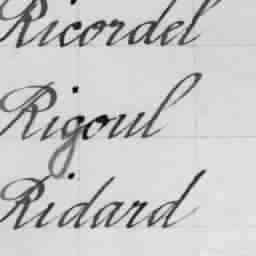 Ricordel
Rigoul
Ridard